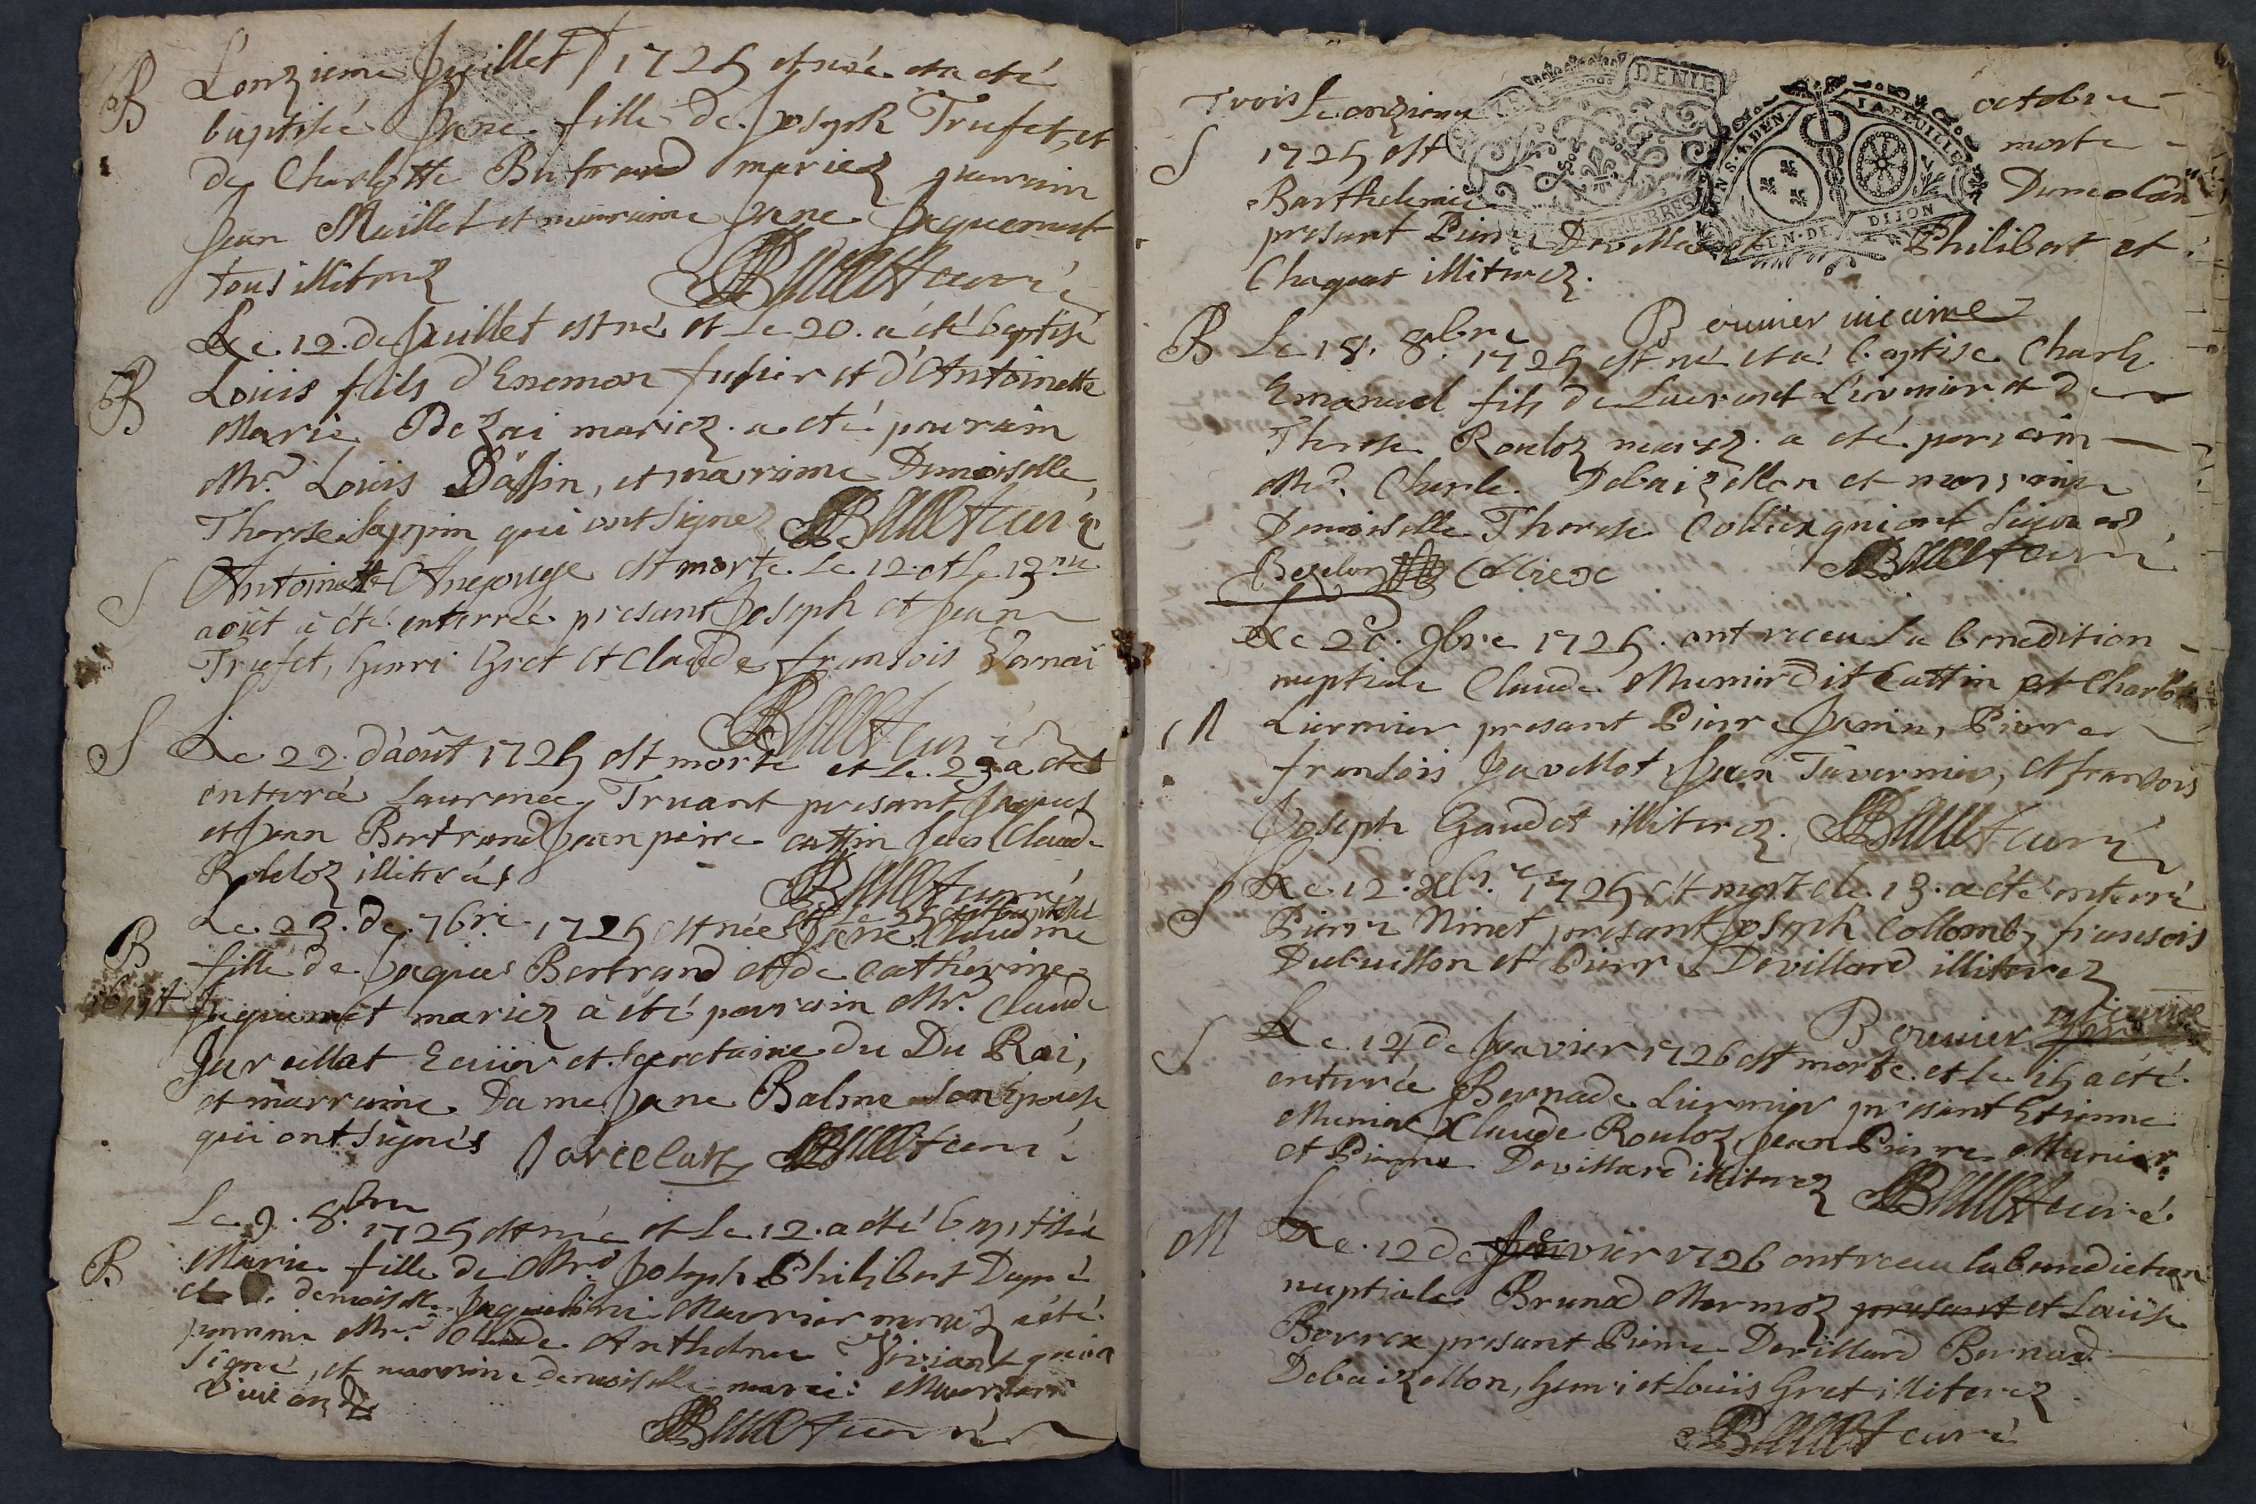 B L'onzieme Juillet 1725 est née et a été
baptisée Jane fille de Joseph Trufet, et
de Charlotte Bertrand mariez parrain
Jean Maillet et marraine Jane Jaquemet
tous illiterez Curé
Le 12. de Juillet est né et Le 20. a été baptisé
B Loüis fils d'Enemon fusier et d'Antoinette
Marie mariez. a été parrain
Mr. Loüis et marraine Demoiselle
Therese Sappin qui ont signez Curé
S Antoinette est morte Le 12. et Le 13.
août à été enterrée presant Joseph et Jean
Trufet, Henri Gret et Claude fransois Vornai
curé
S Le 22. d'août 1725 est morte et Le 23 a eté
enterré Laurence Truant presant Jaques
et Jean Bertrand Jean peirre cattin Jean Claude
Roleloz illiterés curé
Le 23. de. 7bre. 1725 est née Jane Claudine
B fille de Jaques Bertrand et de Catherine
Jaquemet mariez à été parrain Mr. Claude
Jarcellat Ecuier et Secretaire du Du Roi,
et marraine Dame Jane Balme son Epouse
qui ont signés Jarcellat curé
Le 9. 8.bre 1725 est née et Le 12. a été baptisée
B Marie fille de Mr. Joseph Philibert Dupré
et demoiselle Jaqueline Mavrier mariez a été
parrain Mr. Claude Anthelme Viviant qui a
signé, et marraine demoiselle marie
curé
Trois Le onzieme octobre
S 1725 est morte
Barthelemie
presant Pierre Devillard et Philibert et
Chaquet illiterez.
Bouvier vicaire
B Le 18. 8.bre 1725 est né et a été baptise Charle
Emanuel fils de Laurent Liermier et de
Therese Rouloz mariez. a été parrain
Mr. Charle. Debaizellon et marraine
Demoiselle Therese Collieux qui ont signez
Bezelon Collieux curé
Le 20. 9bre 1725. ont receu La benedition
nuptiale Claude Munier dit Cattin et Charlotte
M Liermier presant Pierre Janin, Pierre
fransois Javellot, Jean Tavernier, et fransois
Joseph Gaudet illiterez. curé
Le 12. Xbre. 1725 est mort et le. 13. a été enterré
S Pierre Ninet presant Joseph Collomb, fransois
Dubuisson et Pierre Devillard illiterez
Bouvier vicaire
S Le. 14 de Janvier 1726 est morte. et le 15 a été
enterrée Bernade Liermier presant Etienne
Munier Claude Rouloz Jean Pierre Munier
et Pierre Devillard illiterez curé
M Le. 12 de fevrier 1726 ont receu la benediction
nuptiale Brunod Mermoz presant et Loüise
Borrex presant Pierre Devillard Bernard
Debaizellon, Henri et Loüis Gret illiterez
curé
DENIE
S. 4. DEN.
LA FEUILLE
DIJON